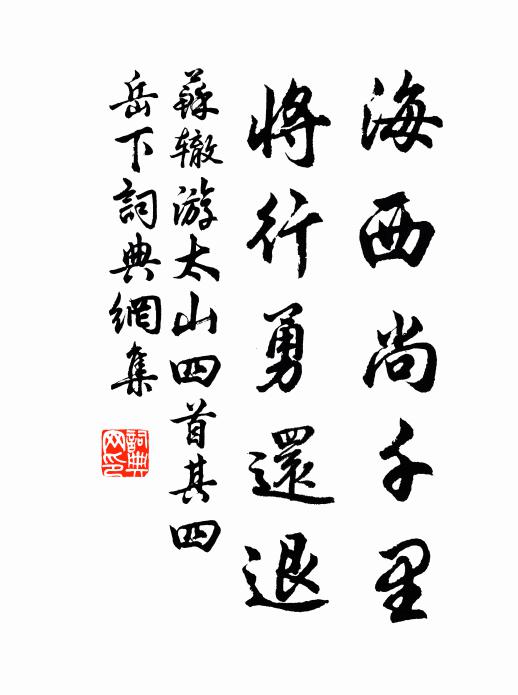 海西尚千里
将行勇還退
蘇辙游太山四首其四
岳下詞典網集
詞典網印